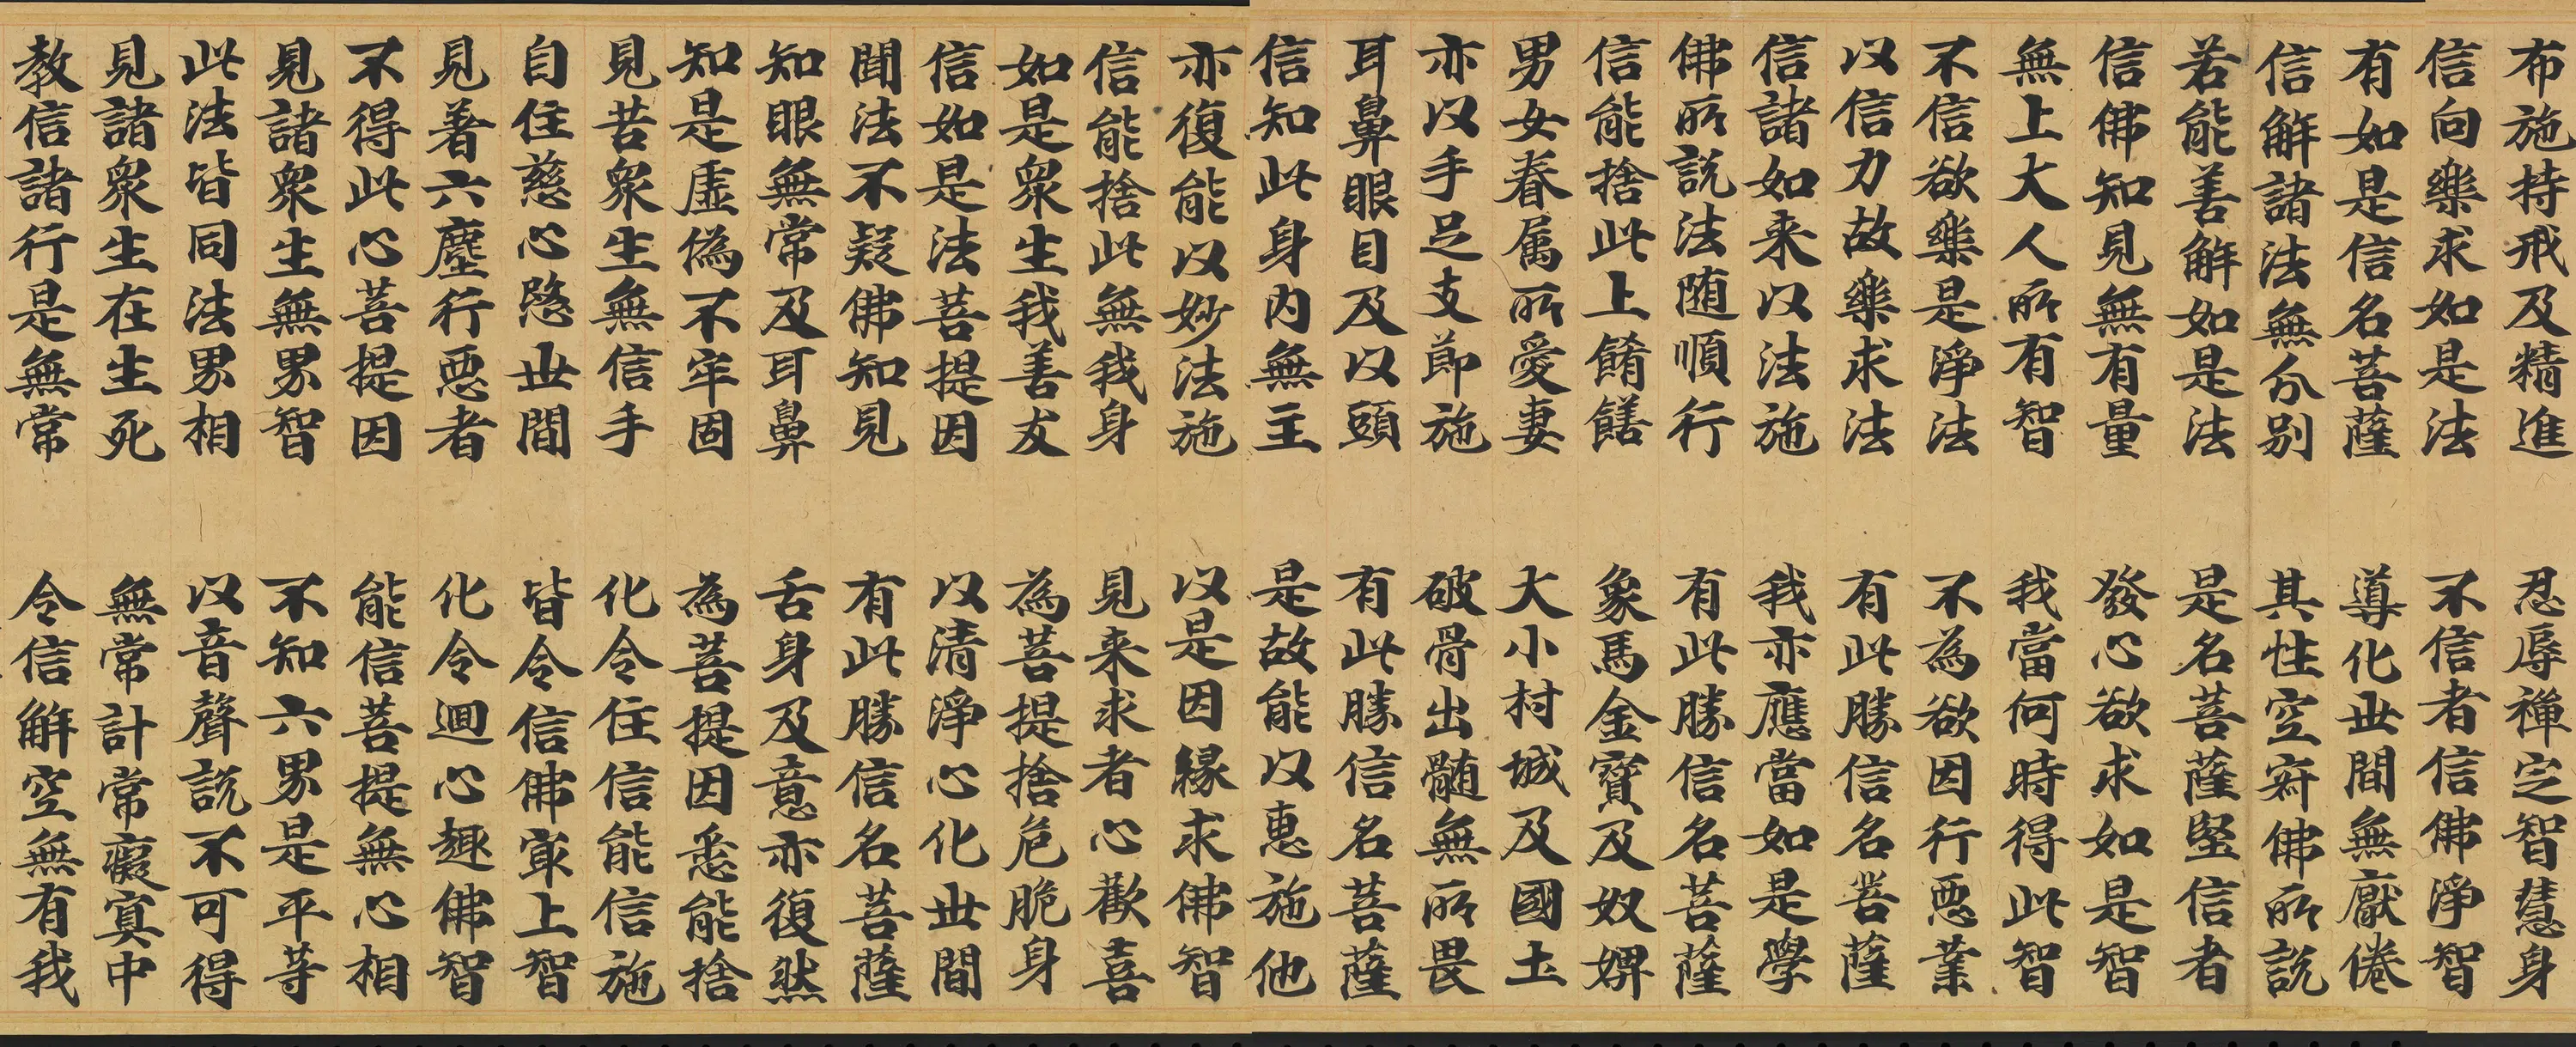 布施持戒及精進　忍辱禪定智慧身
信向樂求如是法　不信者信佛淨智
有如是信名菩薩　導化世間無厭倦
信解諸法無分別　其性空寂佛所説
若能善解如是法　是名菩薩堅信者
信佛知見無有量　發心欲求如是智
無上大人所有智　我當何時得此智
不信欲樂是淨法　不為欲因行惡業
以信力故樂求法　有此勝信名菩薩
信諸如来以法施　我亦應當如是學
佛所説法随順行　有此勝信名菩薩
信能捨此上餚饍　象馬金寶及奴婢
男女眷属所愛妻　大小村城及國土
亦以手足支節施　破骨出髓無所畏
耳鼻眼目及以頭　有此勝信名菩薩
信知此身内無主　是故能以惠施他
亦復能以妙法施　以是因緣求佛智
信能捨此無我身　見来求者心歡喜
如是衆生我善友　為菩提捨危脆身
信如是法菩提因　以清淨心化世間
聞法不疑佛知見　有此勝信名菩薩
知眼無常及耳鼻　舌身及意亦復然
知是虛偽不牢固　為菩提因悉能捨
見苦衆生無信手　化令住信能信施
自住慈心愍世間　皆令信佛冣上智
見著六塵行惡者　化令迴心趣佛智
不得此心菩提因　能信菩提無心相
見諸衆生無界智　不知六界是平等
此法皆同法界相　以音聲説不可得
見諸衆生在生死　無常計常癡冥中
教信諸行是無常　令信解空無有我